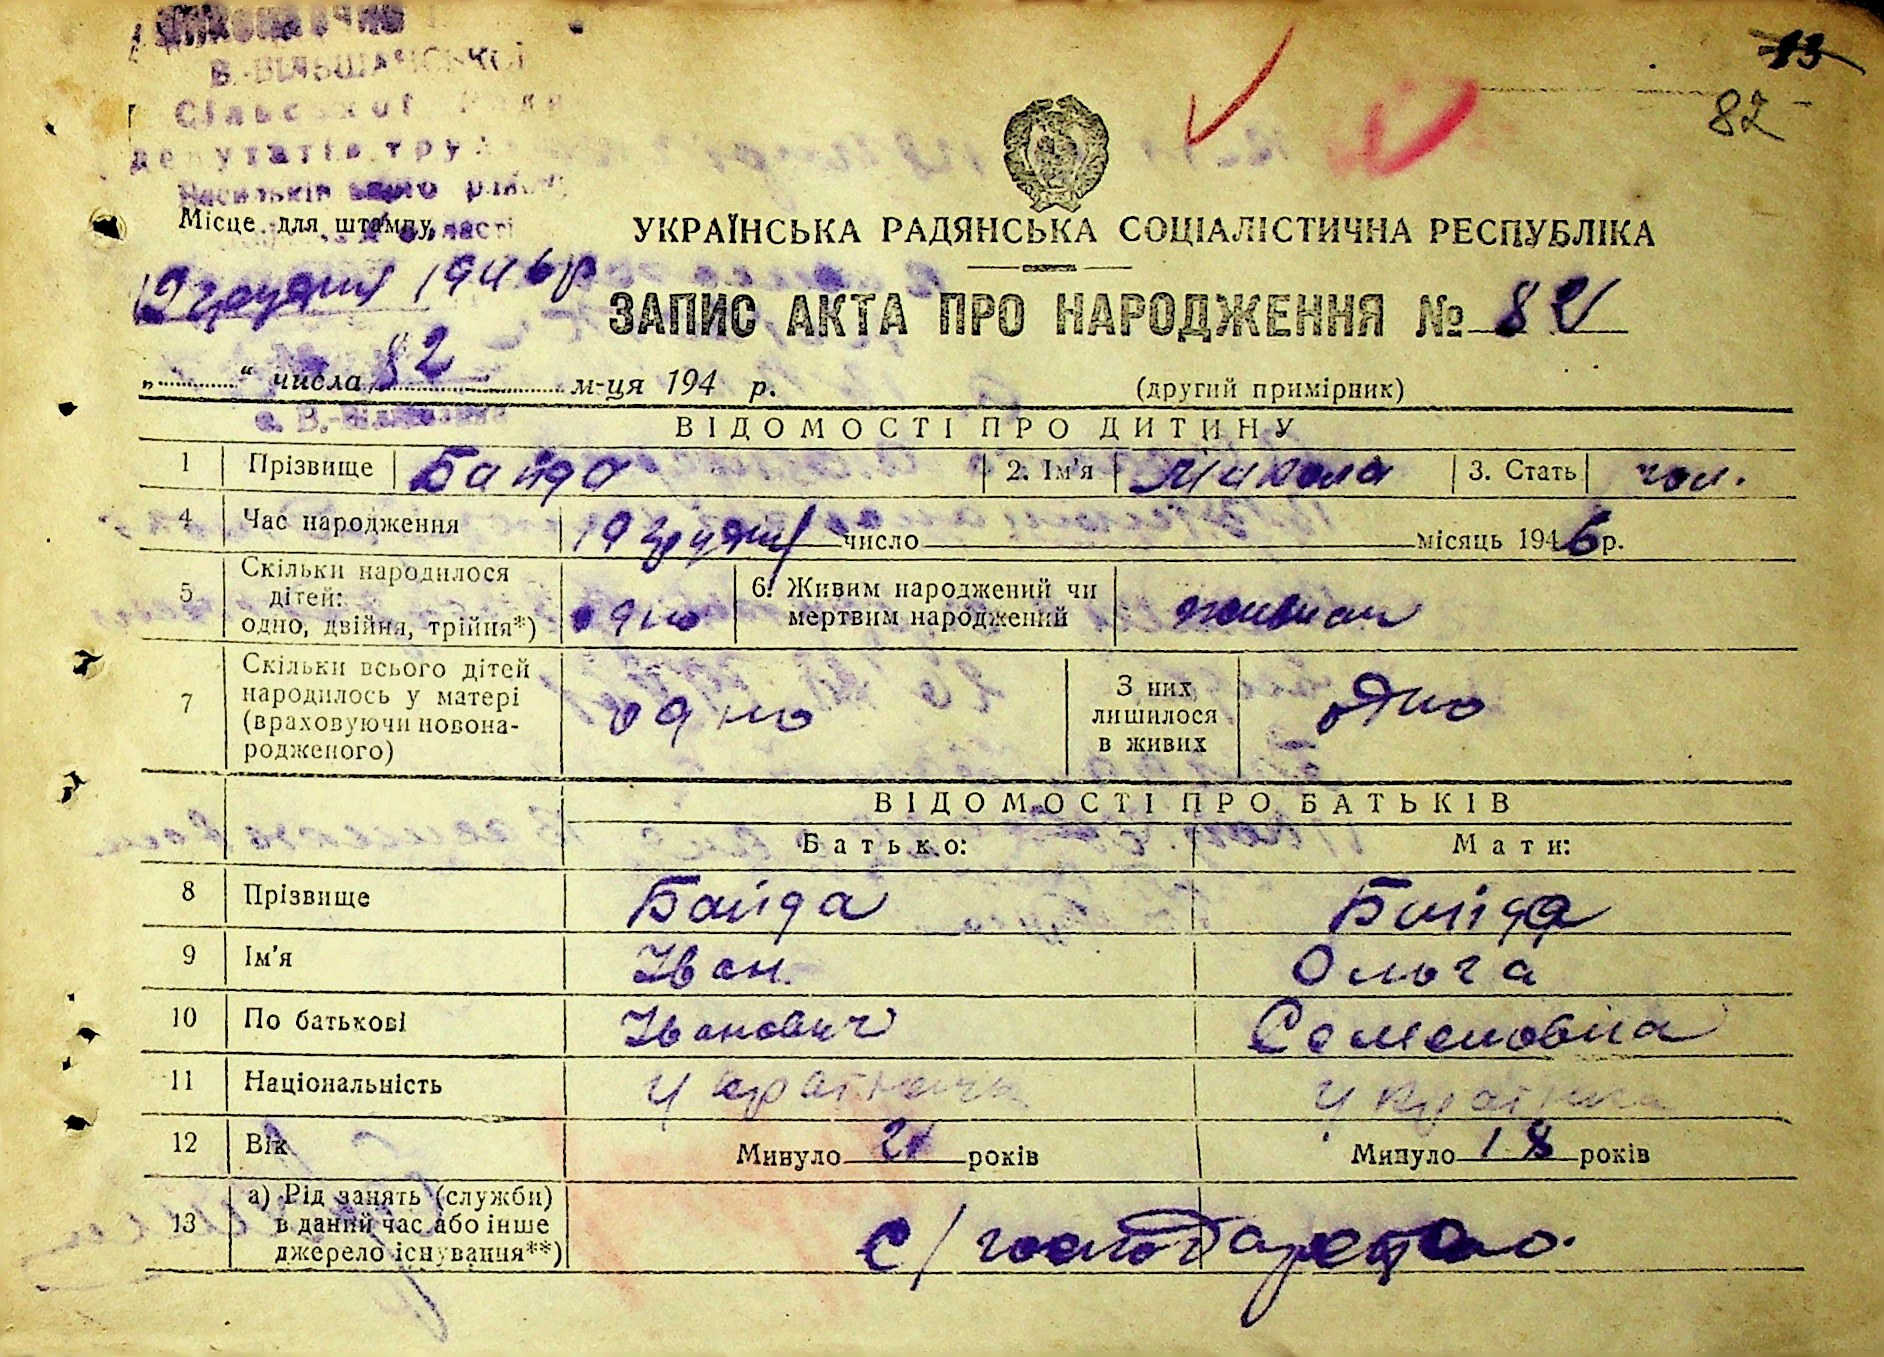 В.-ВІЛЬШАНСЬКОЇ
Сільської Ради
депутатів труд
Васильківського району
Місце для штампу
області
13
82
УКРАЇНСЬКА РАДЯНСЬКА СОЦІАЛІСТИЧНА РЕСПУБЛІКА
19 грудня 1946 р
ЗАПИС АКТА ПРО НАРОДЖЕННЯ № 82
„ “ числа 82 м-ця 194 р.
(другий примірник)
с. В.-Вільшанка
ВІДОМОСТІ ПРО ДИТИНУ
1 Прізвище Байда 2. Ім'я Микола 3. Стать чол.
4 Час народження 19 грудня число місяць 1946 р.
5 Скільки народилося дітей: одно, двійня, трійня*) одно 6. Живим народжений чи мертвим народжений живим
7 Скільки всього дітей народилось у матері (враховуючи новонародженого) одно З них лишилося в живих одно
ВІДОМОСТІ ПРО БАТЬКІВ
Батько: Мати:
8 Прізвище Байда Байда
9 Ім'я Іван Ольга
10 По батькові Іванович Семеновна
11 Національність Українець Українка
12 Вік Минуло 21 років Минуло 18 років
13 а) Рід занять (служби) в даний час або інше джерело існування**) с/господарство.